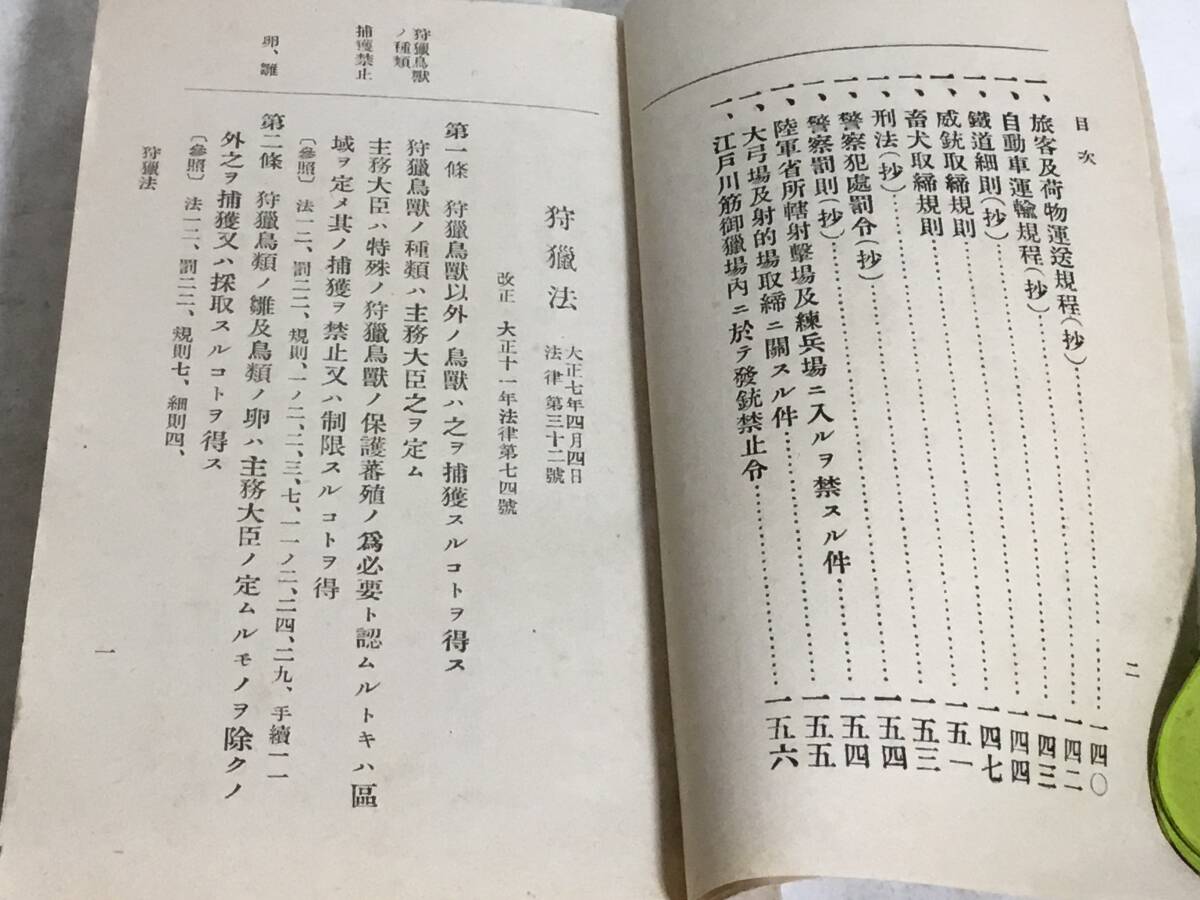 目次
二
一、旅客及荷物運送規程(抄)……一四〇
一、自動車運輸規程(抄)……一四二
一、鐵道細則(抄)……一四三
一、威銃取締規則……一四四
一、畜犬取締規則……一四七
一、刑法(抄)……一五一
一、警察犯處罰令(抄)……一五三
一、警察罰則(抄)……一五四
一、陸軍省所轄射擊場及練兵場ニ入ルヲ禁スル件……一五四
一、大弓場及射的場取締ニ關スル件……一五五
一、江戸川筋御獵場內ニ於テ發銃禁止令……一五六
狩獵法
大正七年四月四日
法律第三十二號
改正 大正十一年法律第七四號
狩獵鳥獸
ノ種類
第一條 狩獵鳥獸以外ノ鳥獸ハ之ヲ捕獲スルコトヲ得ス
狩獵鳥獸ノ種類ハ主務大臣之ヲ定ム
捕獲禁止
主務大臣ハ特殊ノ狩獵鳥獸ノ保護蕃殖ノ爲必要ト認ムルトキハ區
域ヲ定メ其ノ捕獲ヲ禁止又ハ制限スルコトヲ得
〔參照〕 法一二、罰二二、規則、一ノ二、二、三、七、一一ノ二、二四、二九、手續一一
卵、雛
第二條 狩獵鳥類ノ雛及鳥類ノ卵ハ主務大臣ノ定ムルモノヲ除クノ
外之ヲ捕獲又ハ採取スルコトヲ得ス
〔參照〕 法一二、罰二二、規則七、細則四、
狩獵法
一